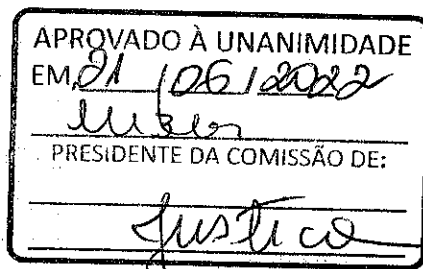 APROVADO À UNANIMIDADE
EM, 21 / 06 / 2022
PRESIDENTE DA COMISSÃO DE:
Justica